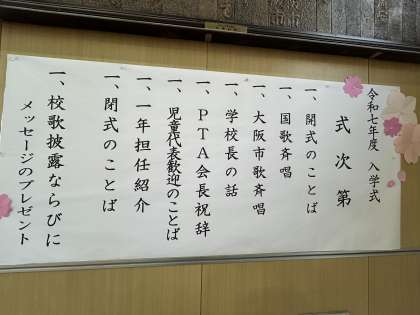 令和七年度 入学式
式次第
一、開式のことば
一、国歌斉唱
一、大阪市歌斉唱
一、学校長の話
一、PTA会長祝辞
一、児童代表歓迎のことば
一、一年担任紹介
一、閉式のことば
一、校歌披露ならびに
メッセージのプレゼント